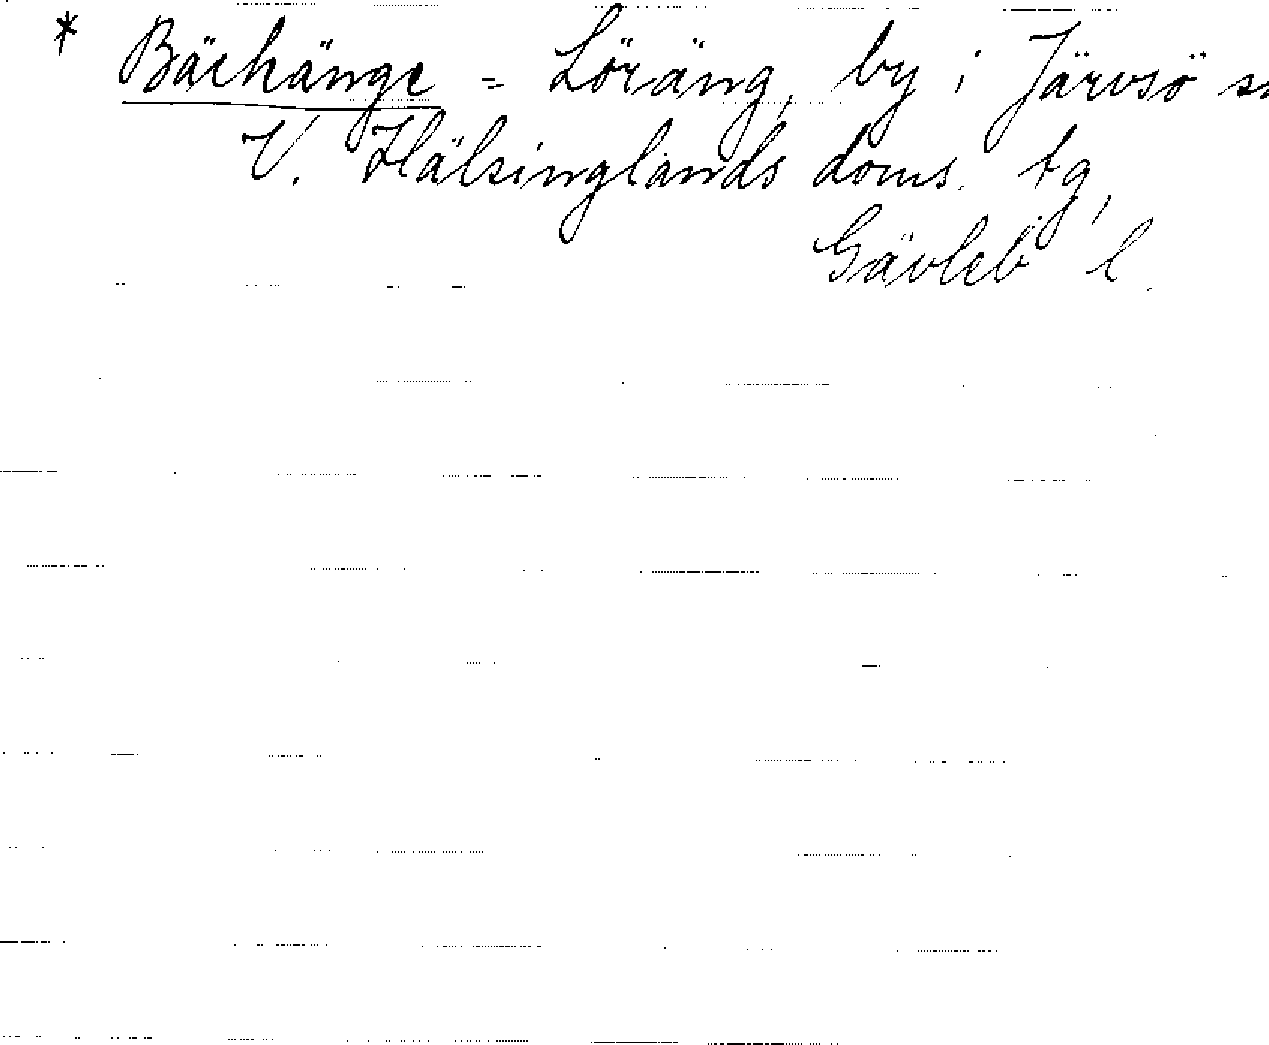 * Bäckänge = Löräng, by i Järvsö sn
V. Hälsinglands doms. tg,
Gävleb l.